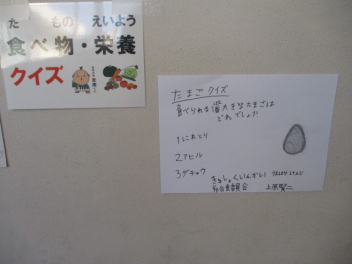 た もの えいよう
食べ物・栄養
クイズ
たまごクイズ
食べられる番大きなたまごは
どれでしょう
1にわとり
2アヒル
3ダチョウ
きゅうしょくいいんかい
給食委員会 上原賢二